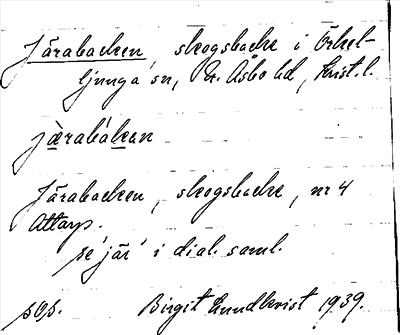 Järabacken, skogsbacke i Örkel-
ljunga sn, N. Åsbo hd, Krist. l.
jæ̀rabákan
Järabacken, skogsbacke, nr 4
Attarp.
se 'jär' i dial. saml.
Birgit Lundkvist 1939.